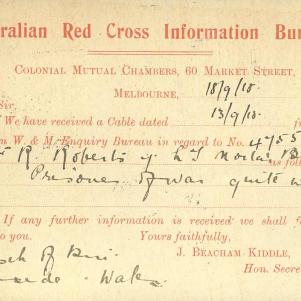 ralian Red Cross Information Bu
COLONIAL MUTUAL CHAMBERS, 60 MARKET STREET,
MELBOURNE, 18/9/18.
Sir,
We have received a Cable dated 13/9/18. f
m W. & M. Enquiry Bureau in regard to No 4755
R. Roberts
as foll
Prisoner of war quite w
If any further information is received we shall
to you. Yours faithfully,
J. BEACHAM KIDDLE,
Hon. Secre
Wales